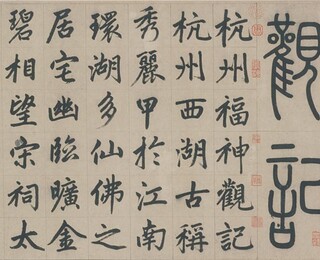 觀記
杭州福神觀記
杭州西湖古稱
秀麗甲於江南
環湖多仙佛之
居宅幽臨曠金
碧相望崇祠太